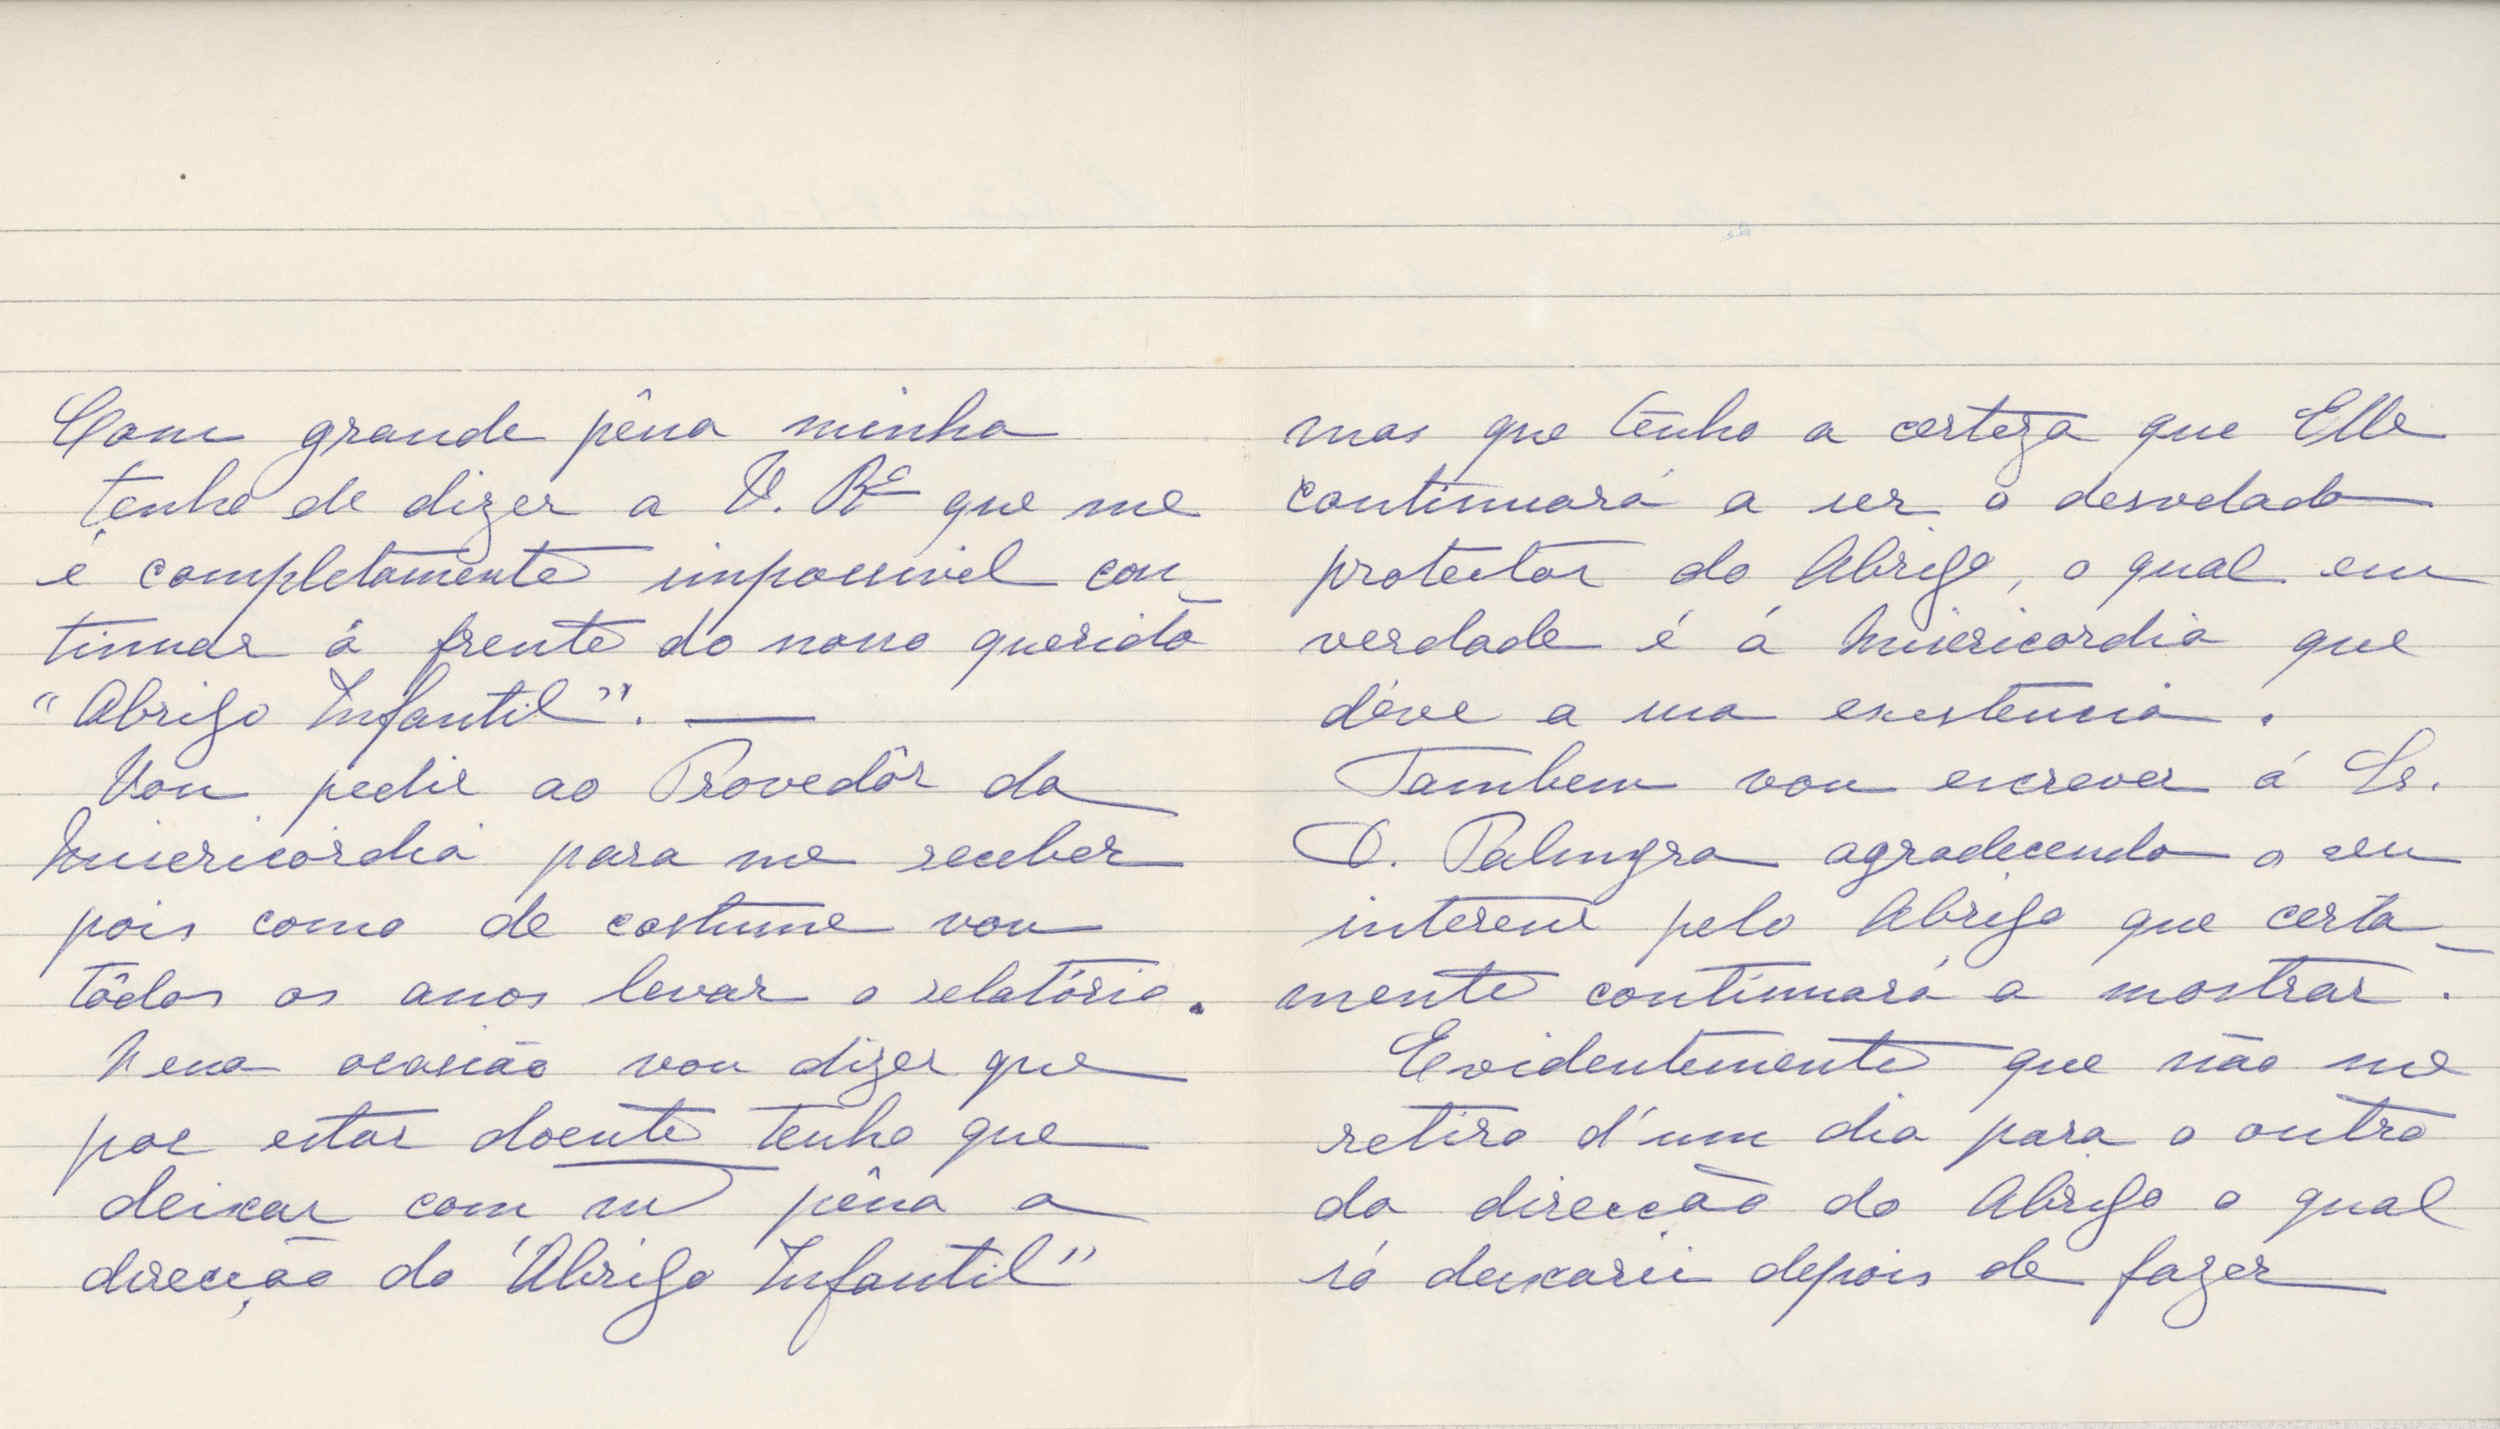 Com grande pêna minha
tenho de dizer a V. Rê que me
é completamente impossivel con-
tinuar á frente do nosso querido
"Abrigo Infantil". —
Vou pedir ao Provedôr da
Misericórdia para me receber
pois como de costume vou
tôdos os anos levar o relatório.
Nessa ocasião vou dizer que
por estar doente tenho que
deixar com mt pêna a
direcção do "Abrigo Infantil"
mas que tenho a certeza que Elle
continuará a ser o desvelado
protector do Abrigo, o qual em
verdade é á Misericordia que
déve a sua existencia.
Tambem vou escrever á Sr.
D. Palmyra agradecendo o seu
interesse pelo Abrigo que certa-
mente continuará a mostrar.
Evidentemente que não me
retiro d'um dia para o outro
da direcção do Abrigo o qual
só deixarei depois de fazer